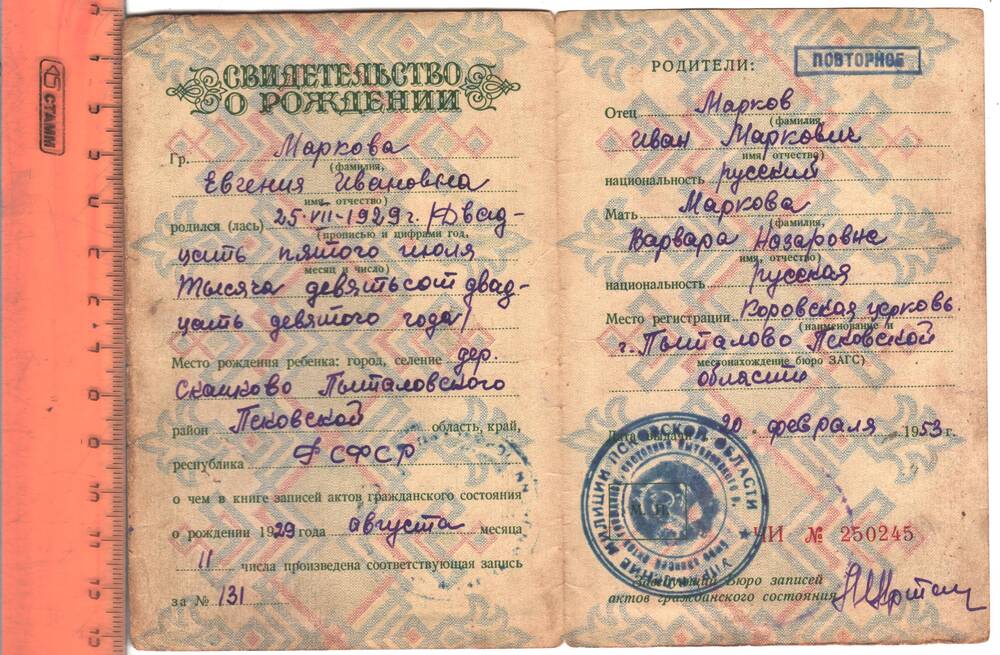 СТАММ
СВИДЕТЕЛЬСТВО
О РОЖДЕНИИ
Гр. Маркова
(фамилия,
Евгения Ивановна
имя, отчество)
родился (лась) 25-VII-1929 г. /Двад-
(прописью и цифрами год,
цать пятого июля
месяц и число)
Тысяча девятьсот двад-
цать девятого года/
Место рождения ребенка: город, селение дер.
Скашково Пыталовского
район Псковской область, край,
республика РСФСР
о чем в книге записей актов гражданского состояния
о рождении 1929 года августа месяца
11 числа произведена соответствующая запись
за № 131
ПОВТОРНОЕ
РОДИТЕЛИ:
Отец Марков
(фамилия,
Иван Маркович
имя, отчество)
национальность русский
Мать Маркова
(фамилия,
Варвара Назаровна
имя, отчество)
национальность русская
Место регистрации Боровская церковь.
(наименование и
г. Пыталово Псковской
местонахождение бюро ЗАГС)
области
Дата выдачи 20 февраля 1953 г.
УПРАВЛЕНИЕ МИЛИЦИИ ПСКОВСКОЙ ОБЛАСТИ
М. П.
ЧИ № 250245
Заведующий Бюро записей
актов гражданского состояния